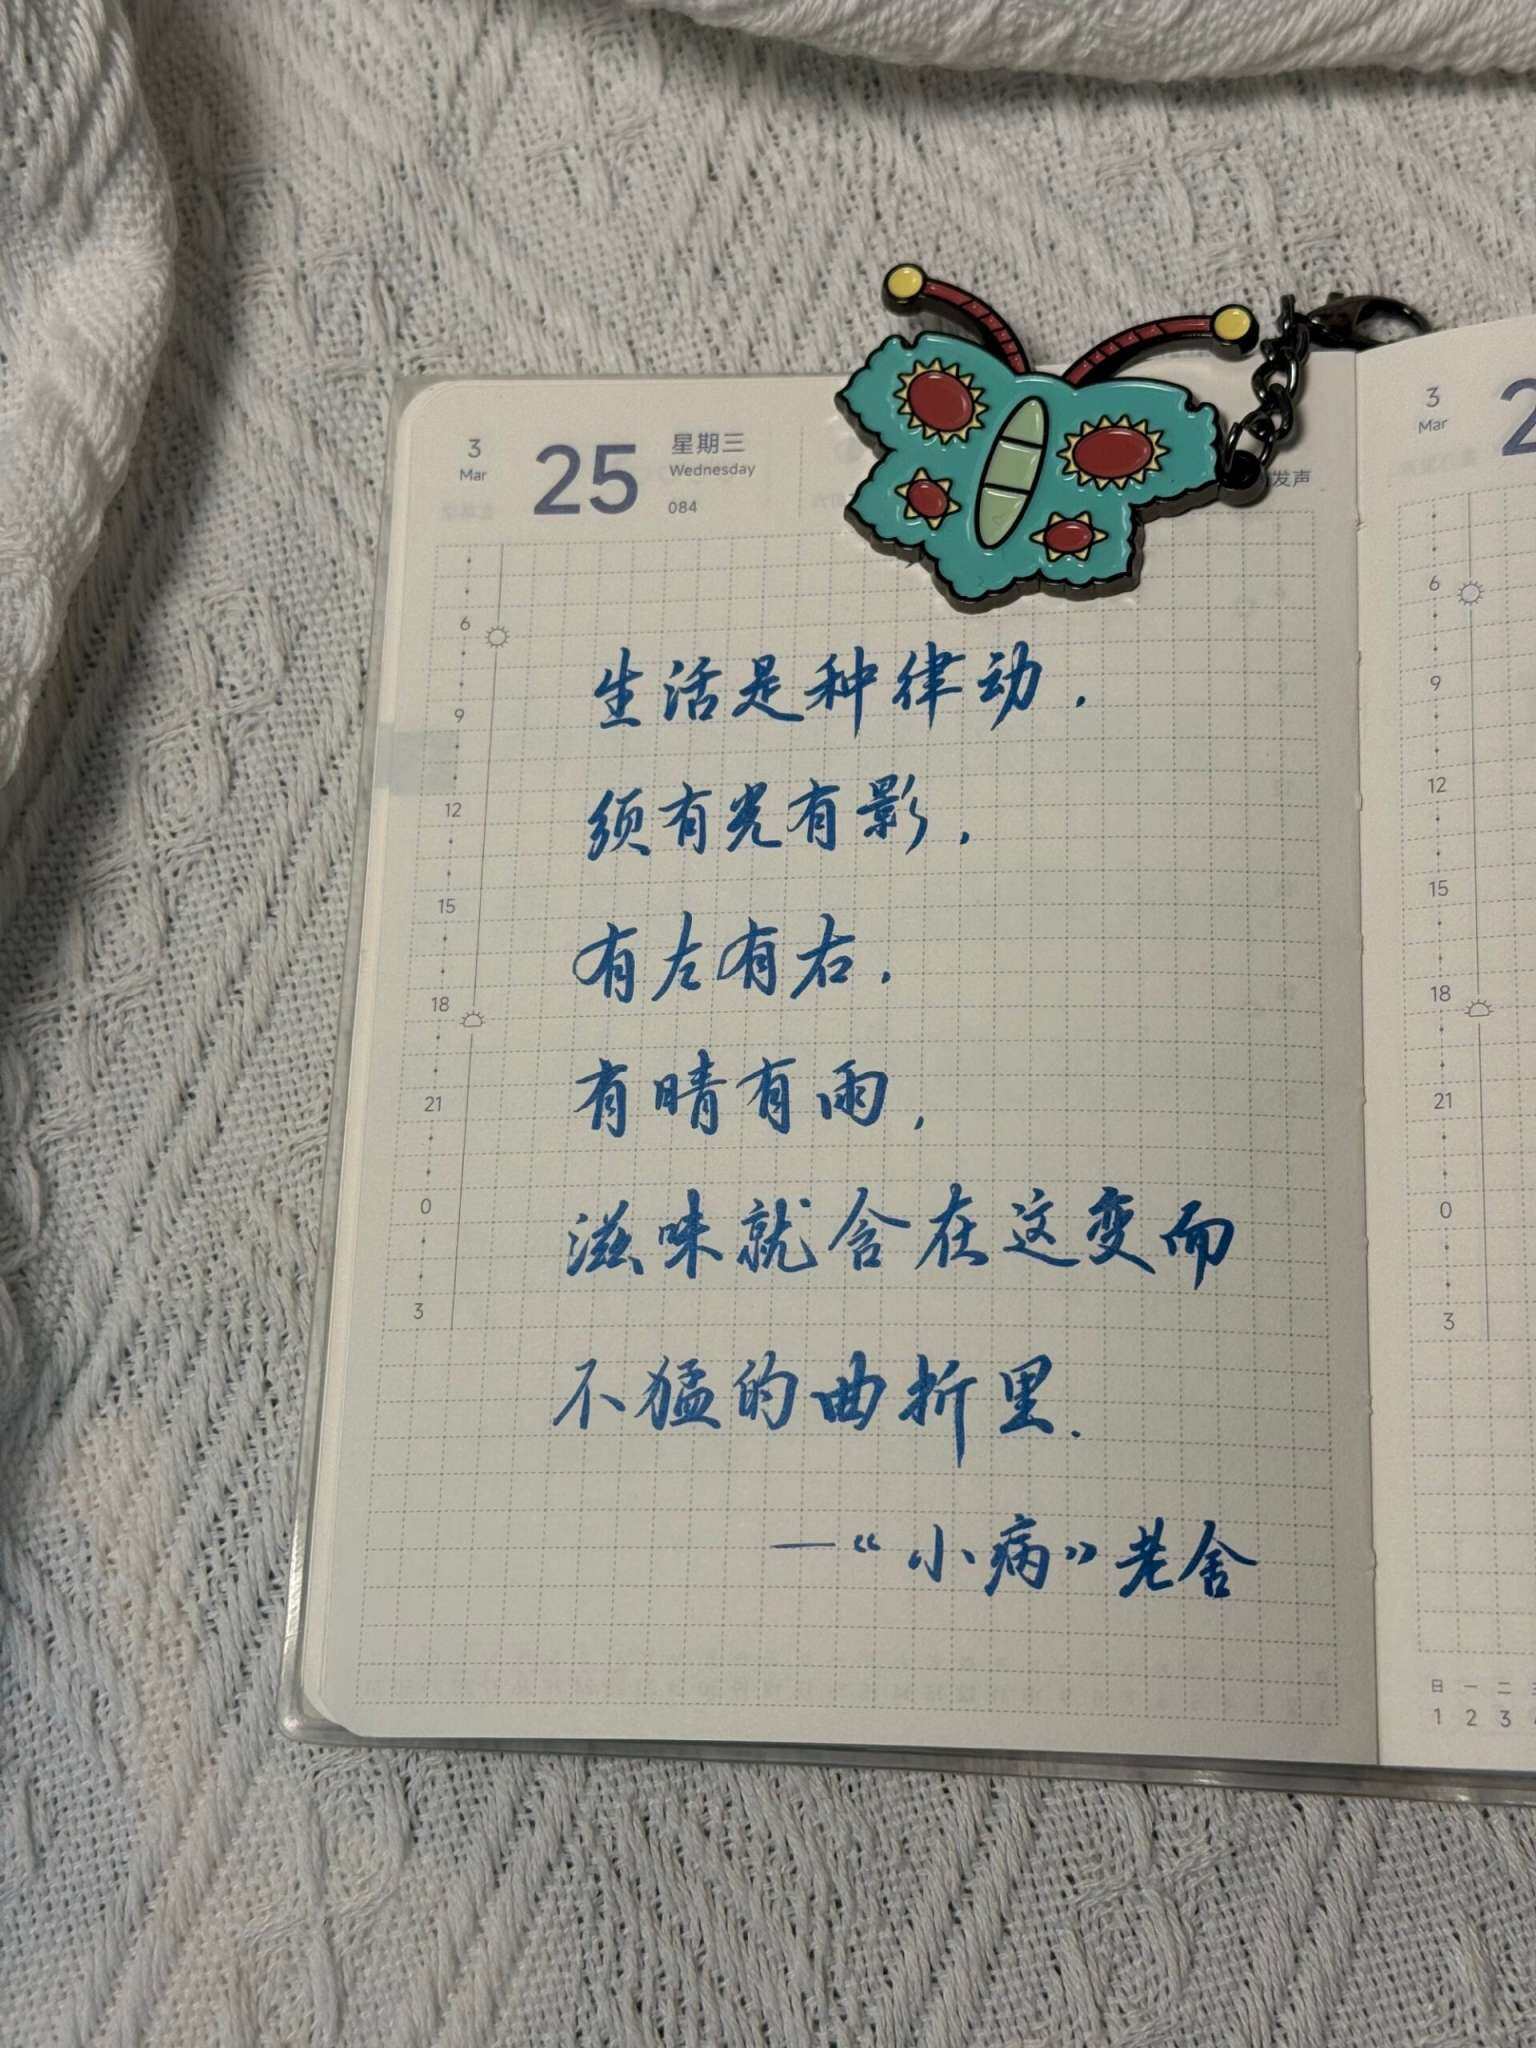 3
Mar
25
星期三
Wednesday
084
发声
6
9
12
15
18
21
0
3
生活是种律动,
须有光有影,
有左有右,
有晴有雨,
滋味就含在这变而
不猛的曲折里.
—“小病”老舍
3
Mar
2
6
9
12
15
18
21
0
3
日 一 二
1 2 3